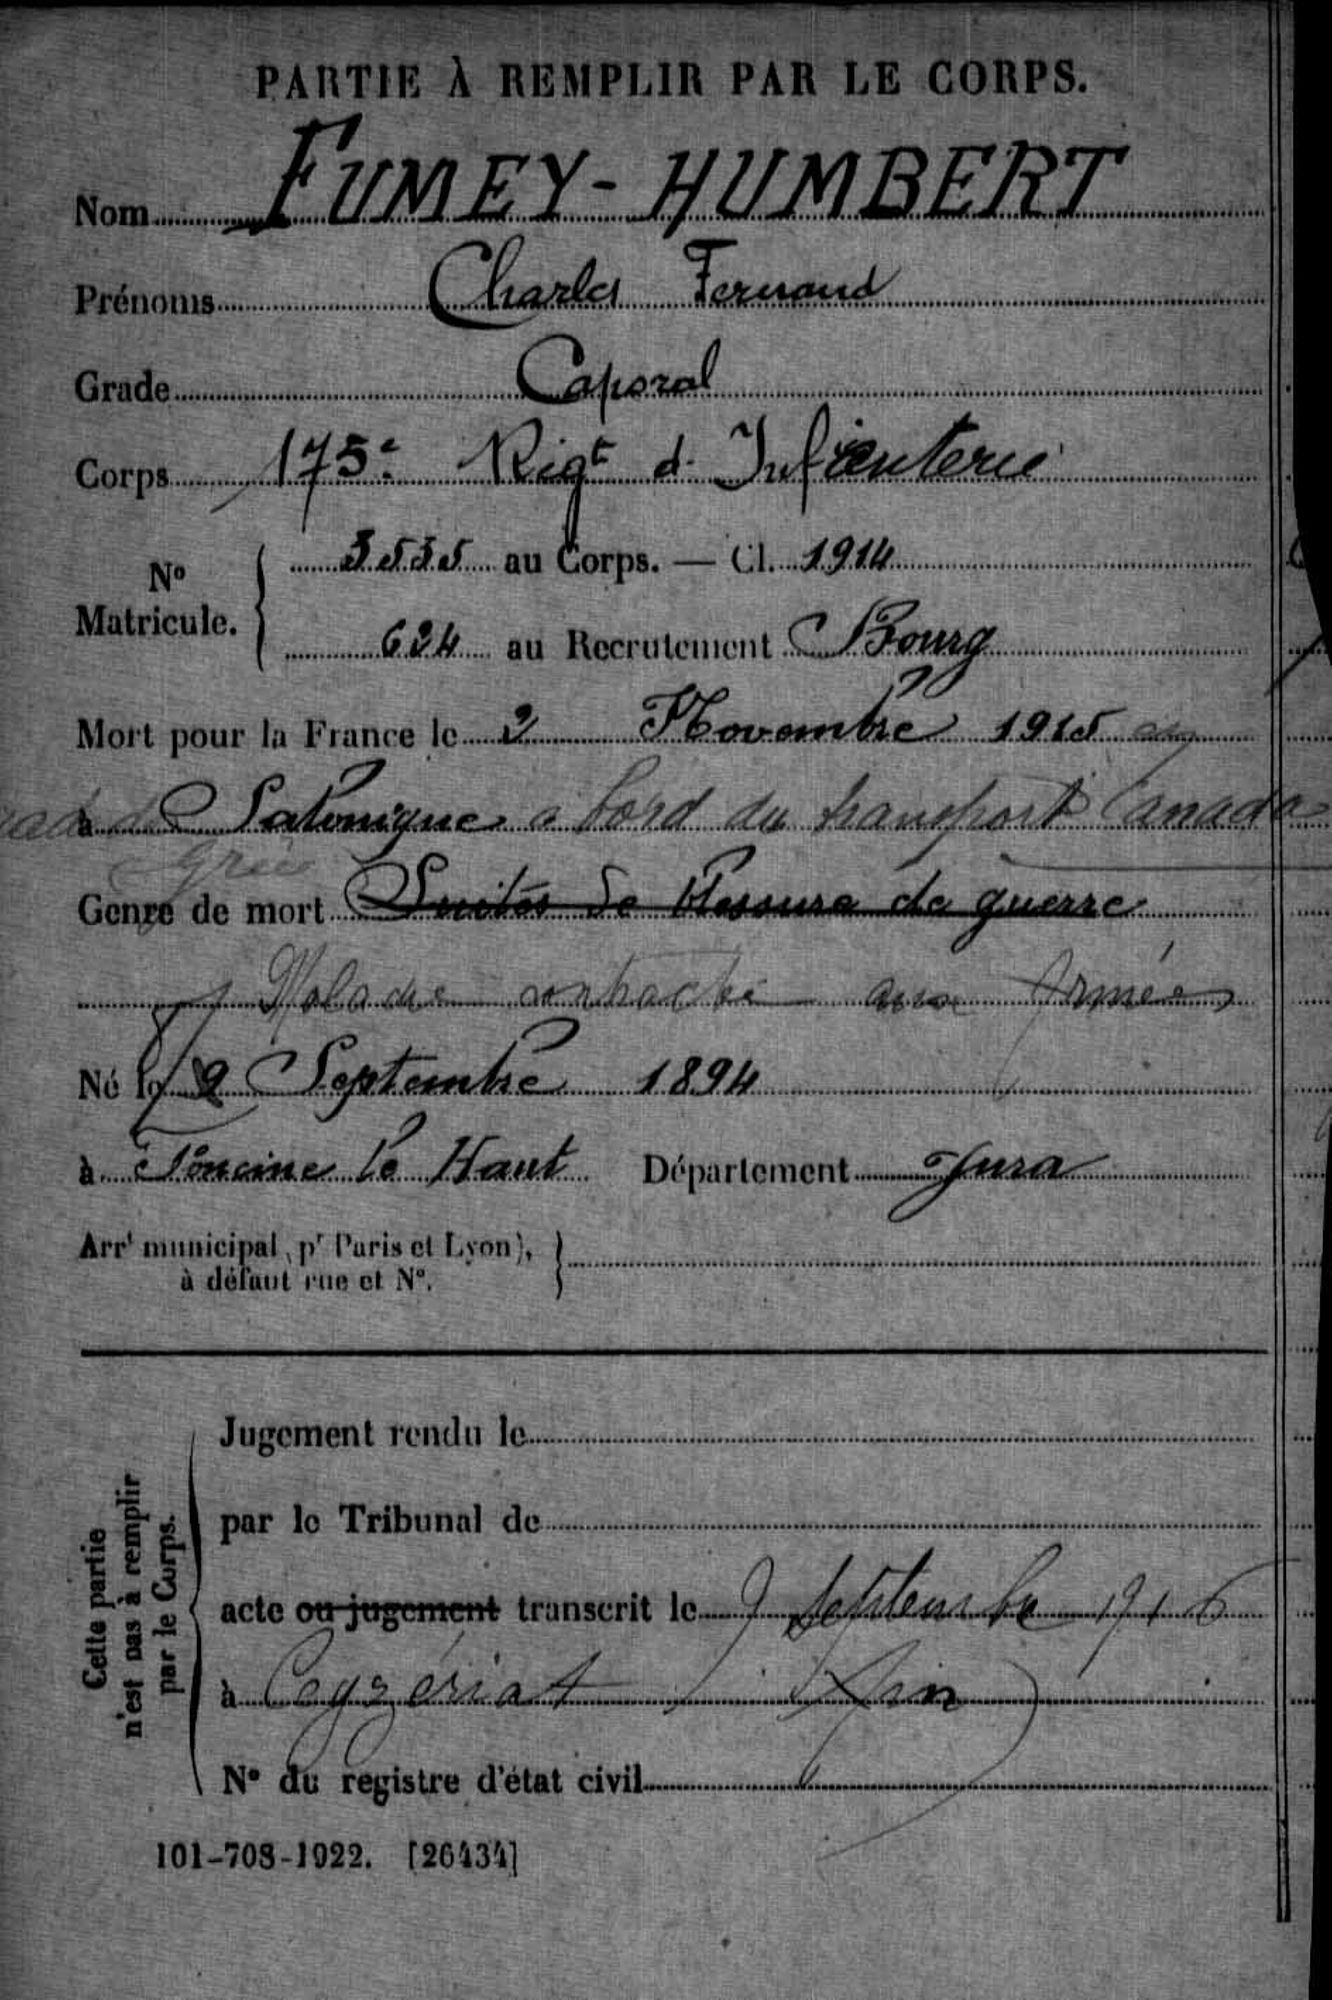 PARTIE À REMPLIR PAR LE CORPS.
Nom FUMEY-HUMBERT
Prénoms Charles Fernand
Grade Caporal
Corps 175e Rigt d' Infanterie
No Matricule. 3535 au Corps. — Cl. 1914
634 au Recrutement Bourg
Mort pour la France le 2 Novembre 1915 en
à Salonique à bord du transport Canada
Grèce
Genre de mort Suites de blessure de guerre
Maladie contractée aux Armées
Né le 2 Septembre 1894
à Foncine le Haut Département Jura
Arrt municipal (pr Paris et Lyon),
à défaut rue et No.
Cette partie
n'est pas à remplir
par le Corps.
Jugement rendu le
par le Tribunal de
acte ou jugement transcrit le 9 Septembre 1916
à Ceyzériat (Ain)
No du registre d'état civil
101-708-1922. [26434]